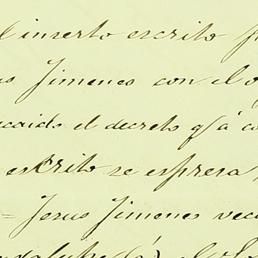 l inserto escrito
s Jimenes con el
caido el decreto q/á
escrito se espresa
= Jesus Jimenes vec